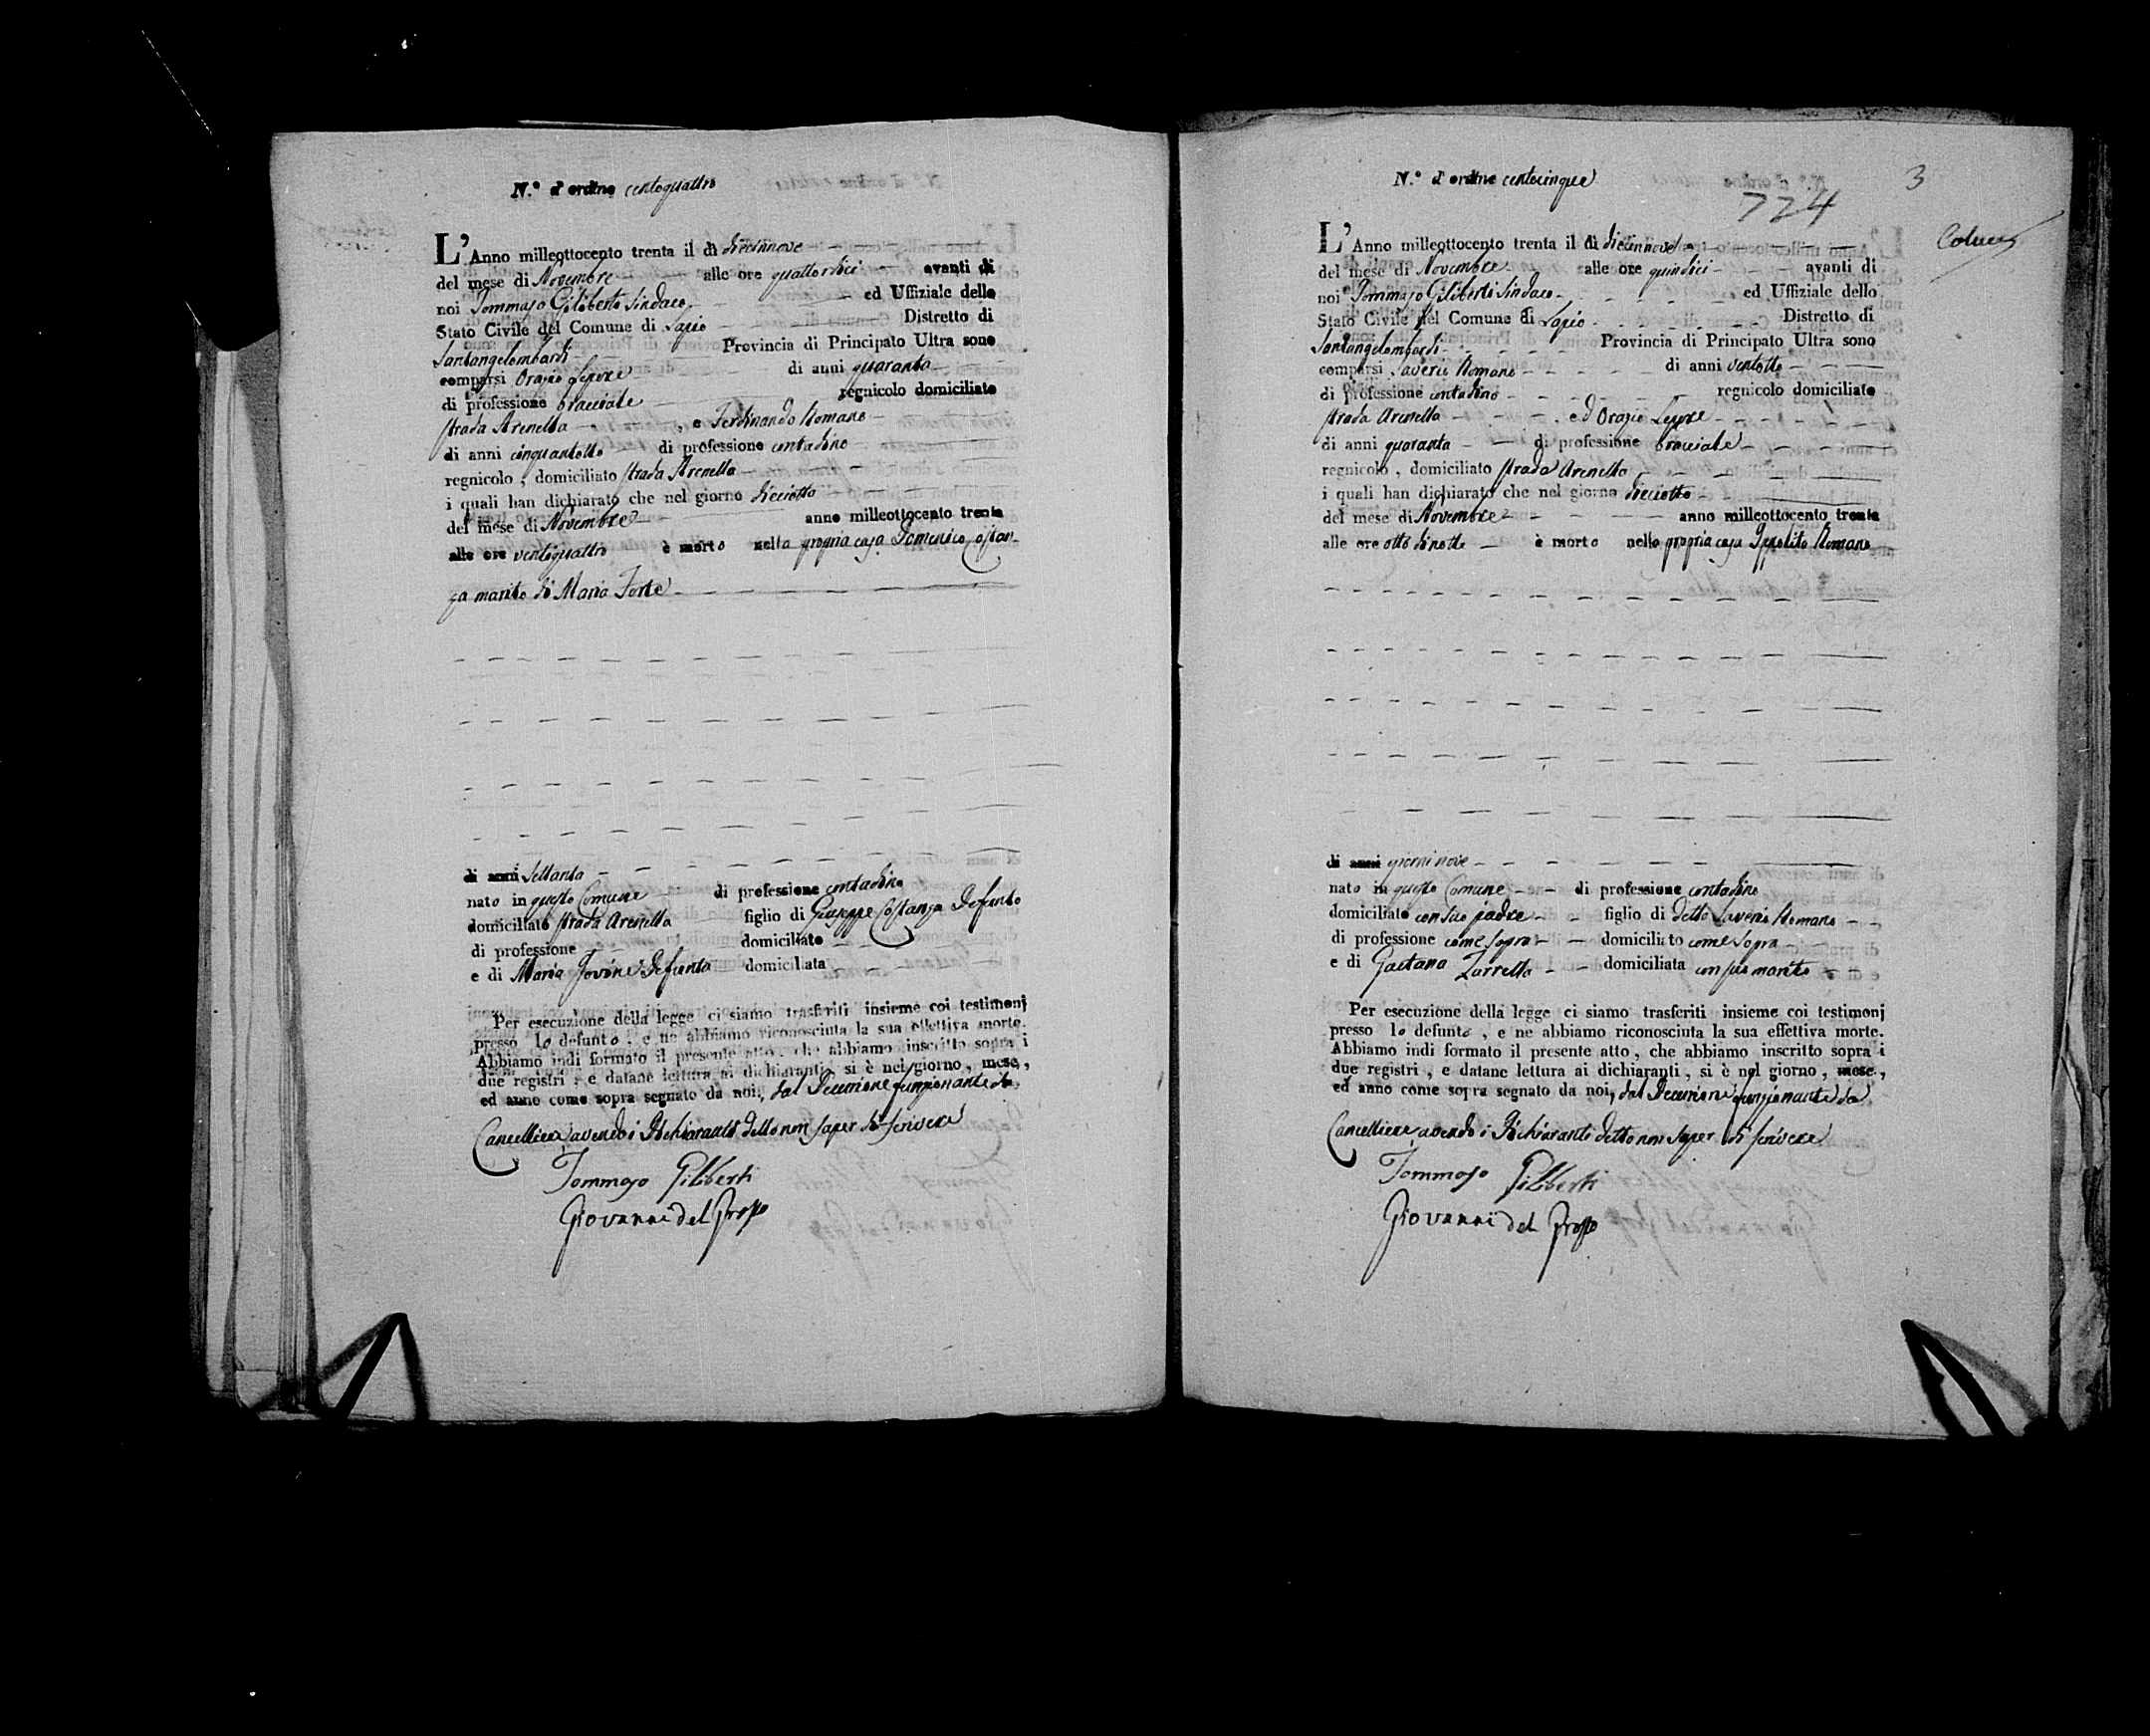 N.° d'ordine centoquattro
L'Anno milleottocento trenta il dì diecinnove
del mese di Novembre alle ore quattordici avanti di
noi Tommaso Giliberti Sindaco ed Uffiziale dello
Stato Civile del Comune di Lapio Distretto di
Santangelombardi Provincia di Principato Ultra sono
comparsi Orazio Lepore di anni quaranta
di professione bracciale regnicolo domiciliato
strada Arenella , e Ferdinando Romano
di anni cinquantotto di professione contadino
regnicolo , domiciliato strada Arenella
i quali han dichiarato che nel giorno dieciotto
del mese di Novembre anno milleottocento trenta
alle ore ventiquattro è morto nella propria casa Domenico Costan-
za marito di Maria Forte
di anni settanta
nato in questo Comune di professione contadino
domiciliato strada Arenella figlio di Giuseppe Costanza defunto
di professione domiciliato
e di Maria Iovine defunta domiciliata
Per esecuzione della legge ci siamo trasferiti insieme coi testimonj
presso lo defunto , e ne abbiamo riconosciuta la sua effettiva morte.
Abbiamo indi formato il presente atto , che abbiamo inscritto sopra i
due registri , e datane lettura ai dichiaranti, si è nel giorno , mese,
ed anno come sopra segnato da noi, dal Decurione funzionante da
Cancelliere, avendo i dichiaranti detto non saper di scrivere
Tommaso Giliberti
Giovanni del Grosso
N.° d'ordine centocinque
3
724
L'Anno milleottocento trenta il dì diecinnove
del mese di Novembre alle ore quindici avanti di
noi Tommaso Giliberti Sindaco ed Uffiziale dello
Stato Civile del Comune di Lapio Distretto di
Santangelombardi Provincia di Principato Ultra sono
comparsi Saverio Romano di anni ventotto
di professione contadino regnicolo domiciliato
strada Arenella , ed Orazio Lepore
di anni quaranta di professione bracciale
regnicolo , domiciliato strada Arenella
i quali han dichiarato che nel giorno dieciotto
del mese di Novembre anno milleottocento trenta
alle ore otto di notte è morto nella propria casa Ippolito Romano
di anni giorni nove
nato in questo Comune di professione contadino
domiciliato con suo padre figlio di detto Saverio Romano
di professione come sopra domiciliato come sopra
e di Gaetana Zarrella domiciliata con suo marito
Per esecuzione della legge ci siamo trasferiti insieme coi testimonj
presso lo defunto , e ne abbiamo riconosciuta la sua effettiva morte.
Abbiamo indi formato il presente atto , che abbiamo inscritto sopra i
due registri , e datane lettura ai dichiaranti, si è nel giorno , mese,
ed anno come sopra segnato da noi, dal Decurione funzionante da
Cancelliere, avendo i dichiaranti detto non saper di scrivere
Tommaso Giliberti
Giovanni del Grosso